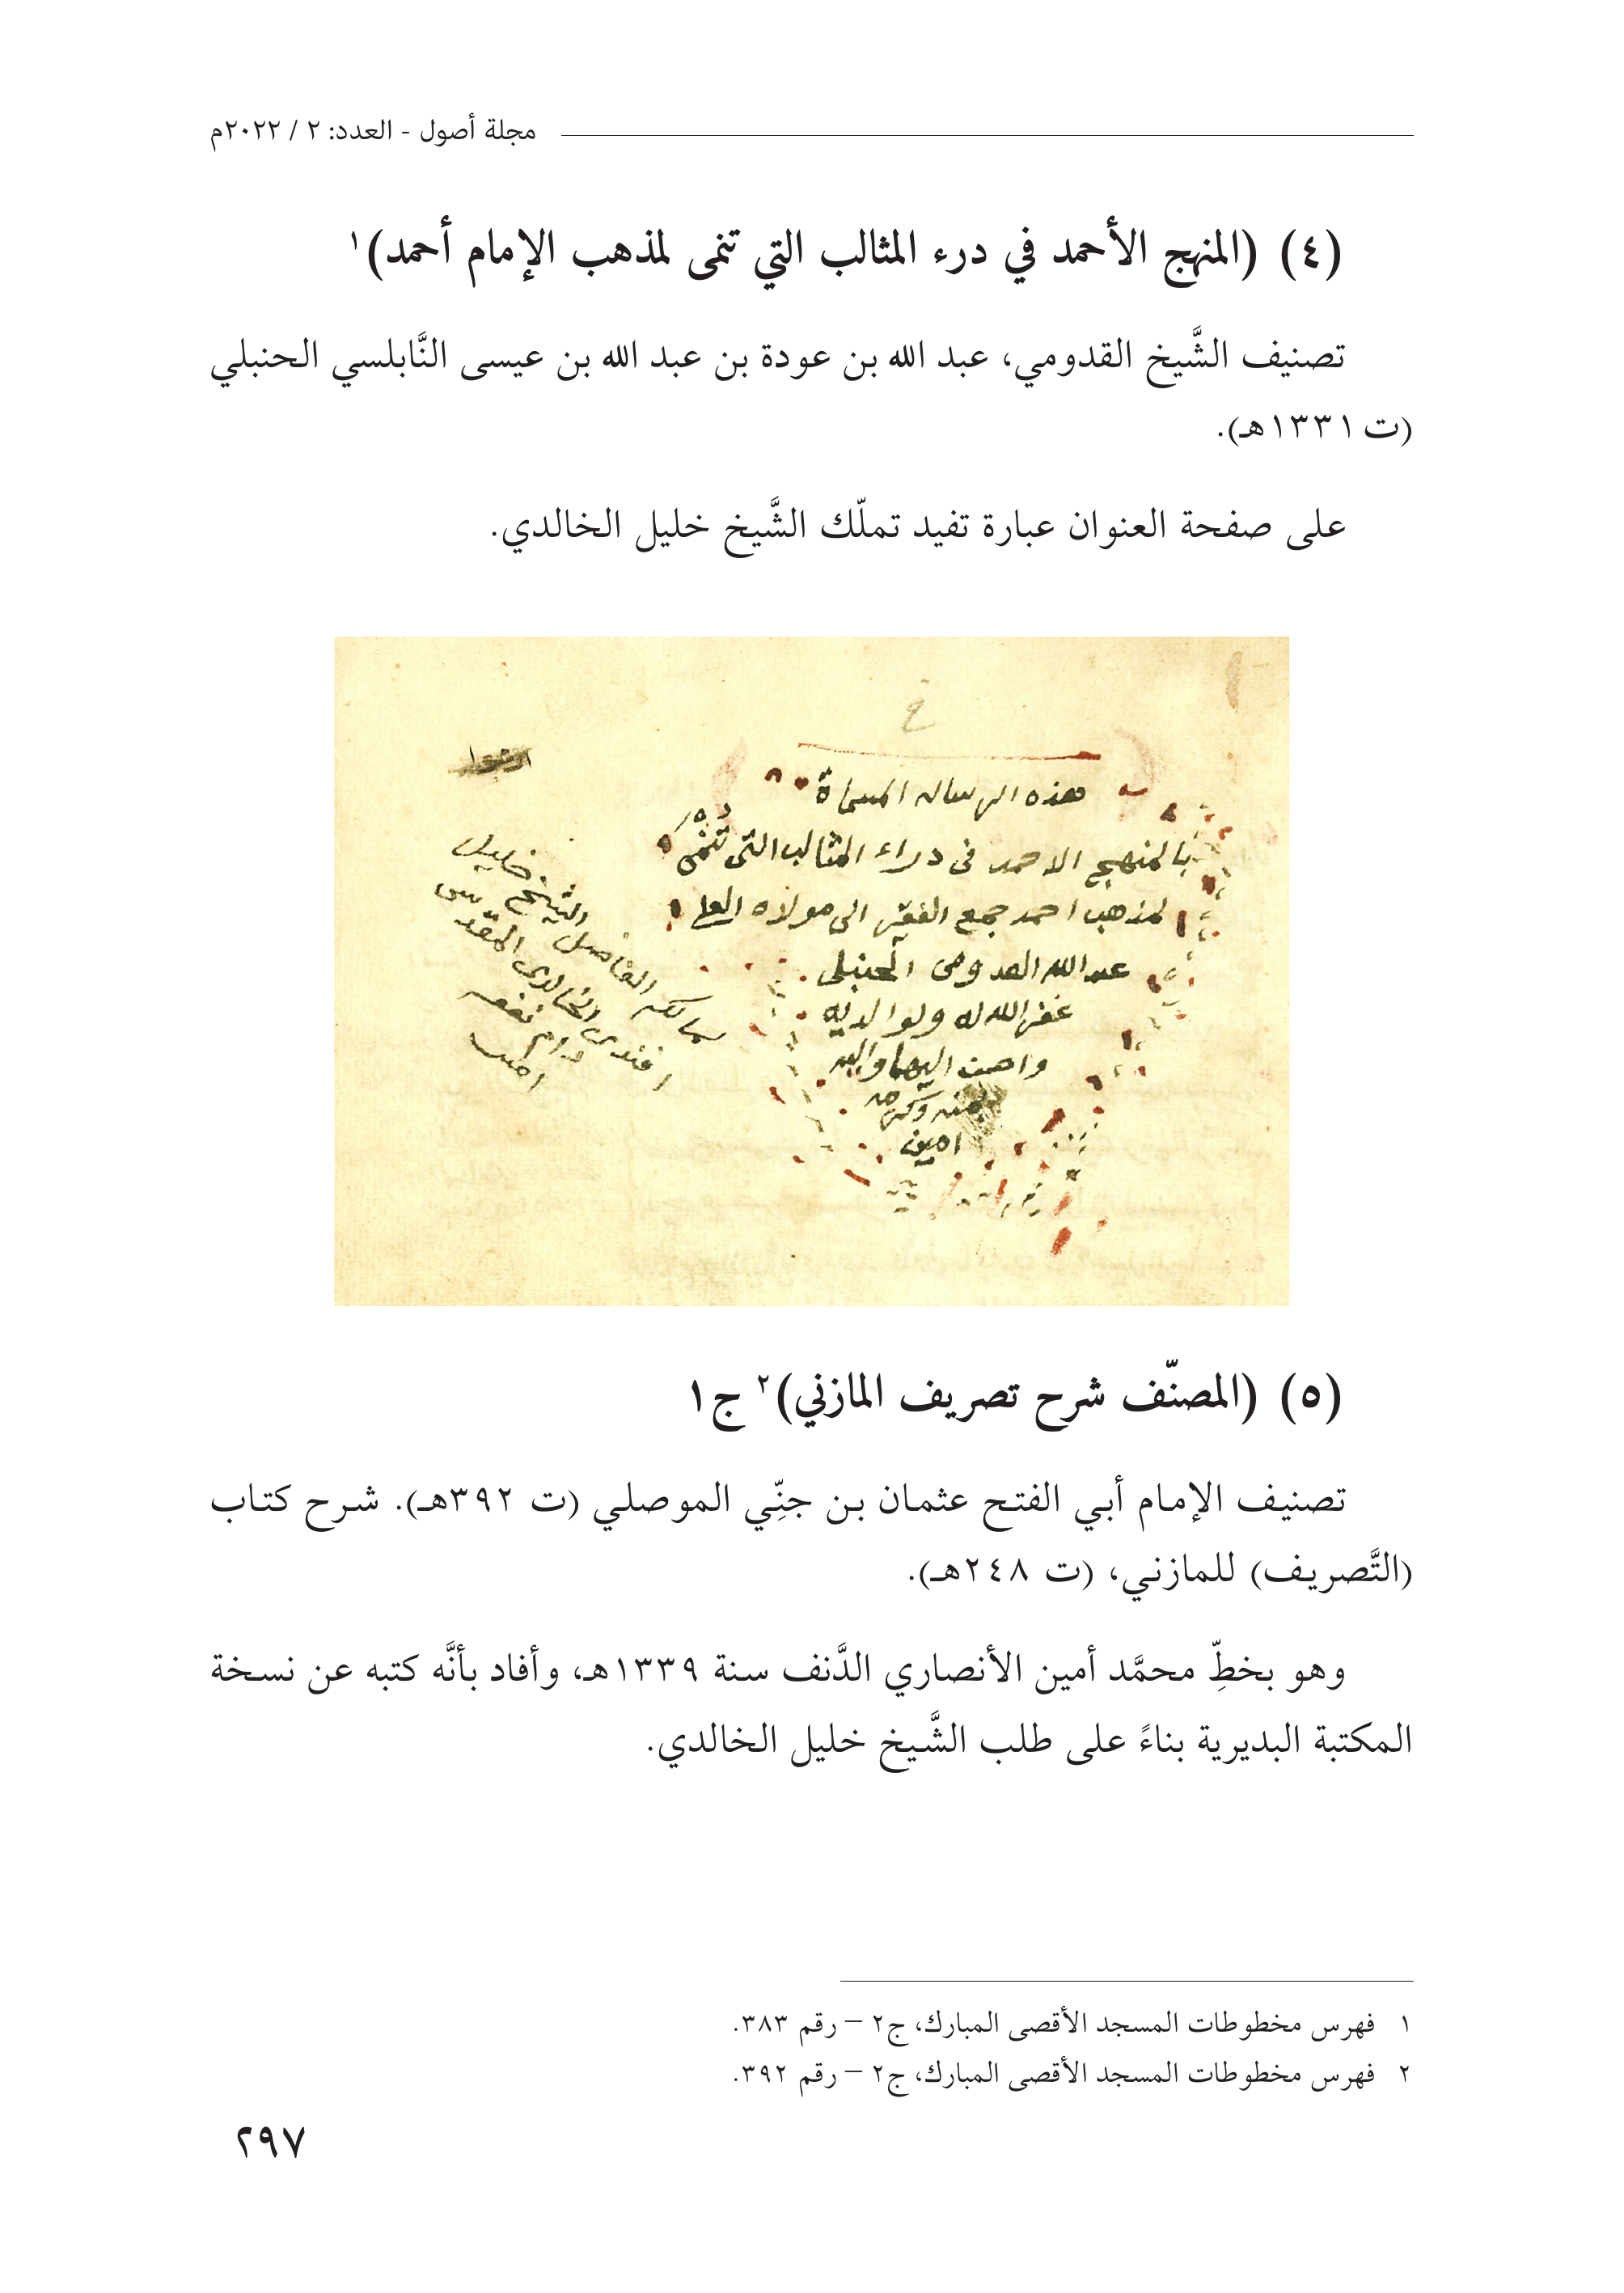 مجلة أصول - العدد: ٢ / ٢٠٢٢م
(٤) (المنهج الأحمد في درء المثالب التي تنمى لمذهب الإمام أحمد)١
تصنيف الشَّيخ القدومي، عبد الله بن عودة بن عبد الله بن عيسى النَّابلسي الحنبلي
(ت١٣٣١هـ).
على صفحة العنوان عبارة تفيد تملّك الشَّيخ خليل الخالدي.
هذه الرساله المسماة
بالمنهج الاحمد فى دراء المثالب التى تنمى
لمذهب احمد جمع الفقير الى مولاه العلي
عبد الله القدومى الحنبلى
غفر الله له ولوالديه
واحسن اليهما واليه
بمنه وكرمه
امين
الشيخ خليل
الفاضل
افندى الخالدى المقدسى
(٥) (المصنّف شرح تصريف المازني)٢ ج١
تصنيف الإمام أبي الفتح عثمان بن جنِّي الموصلي (ت ٣٩٢هـ). شرح كتاب
(التَّصريف) للمازني، (ت ٢٤٨هـ).
وهو بخطِّ محمَّد أمين الأنصاري الدَّنف سنة ١٣٣٩هـ، وأفاد بأنَّه كتبه عن نسخة
المكتبة البديرية بناءً على طلب الشَّيخ خليل الخالدي.
١ فهرس مخطوطات المسجد الأقصى المبارك، ج٢ – رقم ٣٨٣.
٢ فهرس مخطوطات المسجد الأقصى المبارك، ج٢ – رقم ٣٩٢.
٢٩٧